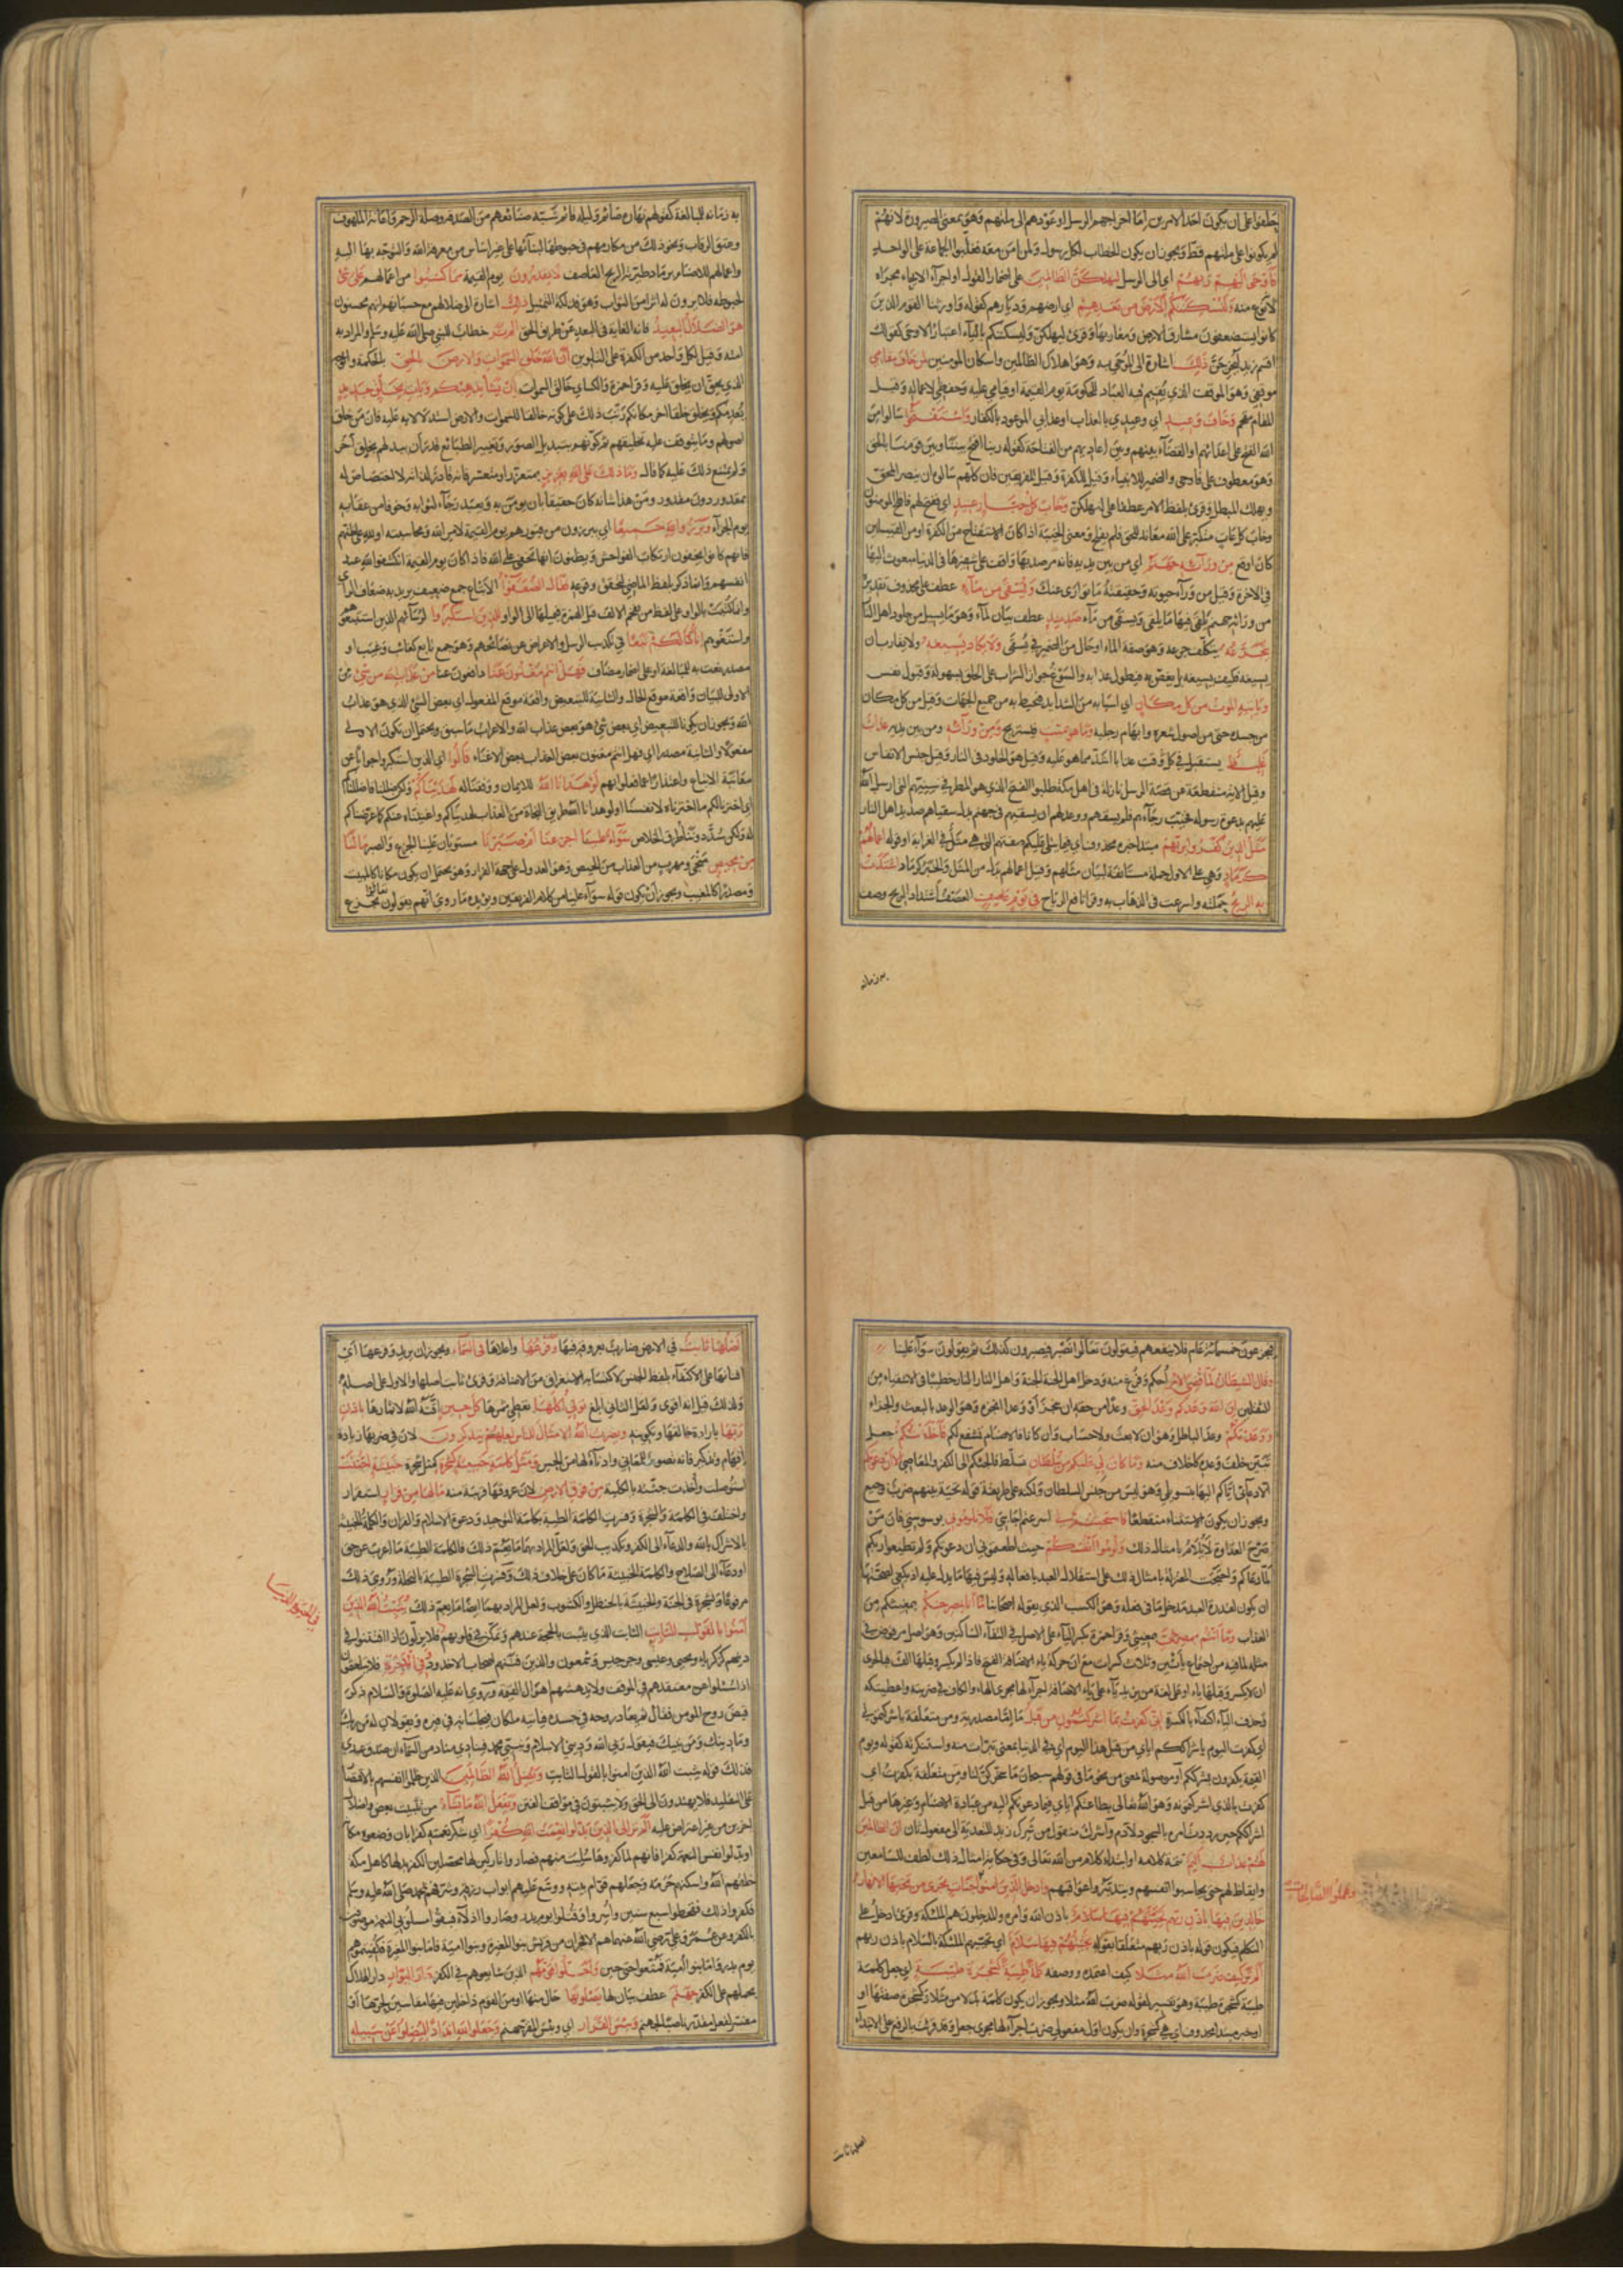 حلفوا على ان يكون احد الامرين اما اخراجهم الرسل او عودهم الى ملتهم وهو بمعنى الصيرورة لانهم
لم يكونوا على ملتهم قط ويجوز ان يكون الخطاب لكل رسول ولمن امن معه فغلبوا الجماعة على الواحد
فَأَوْحَى إِلَيْهِمْ رَبُّهُمْ اي الى الرسل لَنُهْلِكَنَّ الظَّالِمِينَ على اضمار القول او اجراء الايحاء مجراه
لانه نوع منه وَلَنُسْكِنَنَّكُمُ الْأَرْضَ مِنْ بَعْدِهِمْ اي ارضهم وديارهم كقوله واورثنا القوم الذين
كانوا يستضعفون مشارق الارض ومغاربها وقرئ ليهلكن وليسكننكم بالياء اعتبارا لاوحى كقولك
اقسم زيد ليخرجن ذَلِكَ اشارة الى الموحى به وهو اهلاك الظالمين واسكان المومنين لِمَنْ خَافَ مَقَامِي
موقفي وهو الموقف الذي يقيم فيه العباد للحكومة يوم القيمة او قيامي عليه وحفظي لاعماله وقيل
المقام مقحم وَخَافَ وَعِيدِ اي وعيدي بالعذاب او عذابي الموعود بالكفار وَاسْتَفْتَحُوا سالوا من
الله الفتح على اعدائهم او القضاء بينهم وبين اعاديهم من الفتاحة كقوله ربنا افتح بيننا وبين قومنا بالحق
وهو معطوف على فاوحى والضمير للانبياء وقيل للكفرة وقيل للفريقين فان كلهم سالوه ان ينصر المحق
ويهلك المبطل وقرئ بلفظ الامر عطفا على ليهلكن وَخَابَ كُلُّ جَبَّارٍ عَنِيدٍ اي ففتح لهم فافلح المومنون
وخاب كل عات متكبر على الله معاند للحق فلم يفلح ومعنى الخيبة اذا كان الاستفتاح من الكفرة او من القبيلين
كان اوقع مِنْ وَرَائِهِ جَهَنَّمُ اي من بين يديه فانه مرصد بها واقف على شفيرها في الدنيا مبعوث اليها
في الاخرة وقيل من وراء حيوته وحقيقته ما توارى عنك وَيُسْقَى مِنْ مَاءٍ عطف على محذوف تقديره
من ورائه جهنم يلقى فيها ما يلقى ويسقى من ماء صَدِيدٍ عطف بيان لماء وهو ما يسيل من جلود اهل النار
يَتَجَرَّعُهُ يتكلف جرعه وهو صفة لماء او حال من الضمير في يسقى وَلَا يَكَادُ يُسِيغُهُ ولا يقارب ان
يسيغه فكيف يسيغه بل يغص به فيطول عذابه والسوغ جواز الشراب على الحلق بسهولة وقبول نفس
وَيَأْتِيهِ الْمَوْتُ مِنْ كُلِّ مَكَانٍ اي اسبابه من الشدايد فتحيط به من جميع الجهات وقيل من كل مكان
من جسده حتى من اصول شعره وابهام رجليه وَمَا هُوَ بِمَيِّتٍ فيستريح وَمِنْ وَرَائِهِ ومن بين يديه عَذَابٌ
غَلِيظٌ يستقبل في كل وقت عذابا اشد مما هو عليه وقيل هو الخلود في النار وقيل حبس الانفاس
وقيل الاية منقطعة عن قصة الرسل نازلة في اهل مكة طلبوا الفتح الذي هو المطر في سنيهم التي ارسل الله
عليهم بدعوة رسوله فخيب رجاءهم فلم يسقهم ووعدهم ان يسقيهم في جهنم بدل سقياهم صديد اهل النار
مَثَلُ الَّذِينَ كَفَرُوا بِرَبِّهِمْ مبتدا خبره محذوف اي فيما يتلى عليكم صفتهم التي هي مثل في الغرابة او قوله أَعْمَالُهُمْ
كَرَمَادٍ وهي على الاول جملة مستانفة لبيان مثلهم وقيل اعمالهم بدل من المثل والخبر كرماد اشْتَدَّتْ
بِهِ الرِّيحُ حملته واسرعت في الذهاب به وقرا نافع الرياح فِي يَوْمٍ عَاصِفٍ العصف اشتداد الريح وصف
به زمانه
به زمانه للمبالغة كقولهم نهاره صائم وليله قائم شبه صنائعهم من الصدقة وصلة الرحم واغاثة الملهوف
وعتق الرقاب ونحو ذلك من مكارمهم في حبوطها لبنائها على غير اساس من معرفة الله والتوجه بها اليه
واعمالهم للاصنام برماد طيرته الريح العاصف لَا يَقْدِرُونَ يوم القيمة مِمَّا كَسَبُوا من اعمالهم عَلَى شَيْءٍ
لحبوطه فلا يرون له اثرا من الثواب وهو فذلكة التمثيل ذَلِكَ اشارة الى ضلالهم مع حسبانهم انهم محسنون
هُوَ الضَّلَالُ الْبَعِيدُ فانه الغاية في البعد عن طريق الحق أَلَمْ تَرَ خطاب للنبي صلى الله عليه وسلم والمراد به
امته وقيل لكل واحد من الكفرة على التلوين أَنَّ اللَّهَ خَلَقَ السَّمَوَاتِ وَالْأَرْضَ بِالْحَقِّ بالحكمة والوجه
الذي يحق ان يخلق عليه وقرا حمزة والكسائي خالق السموات إِنْ يَشَأْ يُذْهِبْكُمْ وَيَأْتِ بِخَلْقٍ جَدِيدٍ
يعدمكم ويخلق خلقا اخر مكانكم رتب ذلك على كونه خالقا للسموات والارض استدلالا به عليه فان من خلق
اصولهم وما يتوقف عليه تخليقهم ثم كونهم بتبديل الصور وتغيير الطبائع قدر ان يبدلهم بخلق اخر
ولم يمتنع ذلك عليه كما قال وَمَا ذَلِكَ عَلَى اللَّهِ بِعَزِيزٍ بمتعذر او متعسر فانه قادر لذاته لا اختصاص له
بمقدور دون مقدور ومن هذا شانه كان حقيقا بان يومن به ويعبد رجاء لثوابه وخوفا من عقابه
يوم الجزاء وَبَرَزُوا لِلَّهِ جَمِيعًا اي يبرزون من قبورهم يوم القيمة لامر الله ومحاسبته او لله على ظنهم
فانهم كانوا يخفون ارتكاب الفواحش ويظنون انها تخفى على الله فاذا كان يوم القيمة انكشفوا لله عند
انفسهم وانما ذكر بلفظ الماضي لتحقق وقوعه فَقَالَ الضُّعَفَاءُ الاتباع جمع ضعيف يريد به ضعاف الراي
وانما كتبت بالواو على لفظ من يفخم الالف قبل الهمزة فيميلها الى الواو لِلَّذِينَ اسْتَكْبَرُوا لرؤسائهم الذين استتبعوهم
واستغووهم إِنَّا كُنَّا لَكُمْ تَبَعًا في تكذيب الرسل والاعراض عن نصائحهم وهو جمع تابع كغائب وغيب او
مصدر نعت به للمبالغة او على اضمار مضاف فَهَلْ أَنْتُمْ مُغْنُونَ عَنَّا دافعون عنا مِنْ عَذَابِ اللَّهِ مِنْ شَيْءٍ من
الاولى للبيان واقعة موقع الحال والثانية للتبعيض واقعة موقع المفعول اي بعض الشئ الذي هو عذاب
الله ويجوز ان يكونا للتبعيض اي بعض شئ هو بعض عذاب الله والاعراب ما سبق ويحتمل ان تكون الاولى
مفعولا والثانية مصدرا اي فهل انتم مغنون بعض العذاب بعض الاغناء قَالُوا اي الذين استكبروا جوابا عن
معاتبة الاتباع واعتذارا عما فعلوا بهم لَوْ هَدَانَا اللَّهُ للايمان ووفقنا له لَهَدَيْنَاكُمْ ولكن ضللنا فاضللناكم
اي اخترنا لكم ما اخترناه لانفسنا او لو هدانا الله طريق النجاة من العذاب لهديناكم واغنيناه عنكم كما عرضناكم
له ولكن سد دوننا طريق الخلاص سَوَاءٌ عَلَيْنَا أَجَزِعْنَا أَمْ صَبَرْنَا مستويان علينا الجزع والصبر مَا لَنَا
مِنْ مَحِيصٍ منجى ومهرب من العذاب من الحيص وهو العدول على جهة الفرار وهو يحتمل ان يكون مكانا كالمبيت
ومصدرا كالمغيب ويجوز ان يكون قوله سواء علينا من كلام الفريقين ويؤيده ما روى انهم يقولون تعالوا نجزع
فيجزعون خمسمائة عام فلا ينفعهم فيقولون تعالوا نصبر فيصبرون كذلك ثم يقولون سواء علينا
وَقَالَ الشَّيْطَانُ لَمَّا قُضِيَ الْأَمْرُ احكم وفرغ منه ودخل اهل الجنة الجنة واهل النار النار خطيبا في الاشقياء من
الثقلين إِنَّ اللَّهَ وَعَدَكُمْ وَعْدَ الْحَقِّ وعدا من حقه ان ينجز او وعدا انجزه وهو الوعد بالبعث والجزاء
وَوَعَدْتُكُمْ وعد الباطل وهو ان لا بعث ولا حساب وان كانا فالاصنام تشفع لكم فَأَخْلَفْتُكُمْ جعل
تبين خلف وعده كالاخلاف منه وَمَا كَانَ لِي عَلَيْكُمْ مِنْ سُلْطَانٍ تسلط فالجئكم الى الكفر والمعاصي إِلَّا أَنْ دَعَوْتُكُمْ
الا دعائي اياكم اليها بتسويلي وهو ليس من جنس السلطان ولكنه على طريقة قوله تحية بينهم ضرب وجيع
ويجوز ان يكون الاستثناء منقطعا فَاسْتَجَبْتُمْ لِي اسرعتم اجابتي فَلَا تَلُومُونِي بوسوستي فان من
صرح العداوة لا يلام بامثال ذلك وَلُومُوا أَنْفُسَكُمْ حيث اطعتموني ان دعوتكم ولم تطيعوا ربكم
لما دعاكم واحتجت المعتزلة بامثال ذلك على استقلال العبد بافعاله وليس فيها ما يدل عليه اذ يكفي لصحتها
ان يكون لقدرة العبد مدخل ما في فعله وهو الكسب الذي يقوله اصحابنا مَا أَنَا بِمُصْرِخِكُمْ بمغيثكم من
العذاب وَمَا أَنْتُمْ بِمُصْرِخِيَّ بمغيثي وقرا حمزة بكسر الياء على الاصل في التقاء الساكنين وهو اصل مرفوض في
مثله لما فيه من اجتماع يائين وثلاث كسرات مع ان حركة ياء الاضافة الفتح فاذا لم يكسر وقبلها الف فبالحرى
ان لا يكسر وقبلها ياء او على لغة من يزيد ياء على ياء الاضافة اجراء لها مجرى الهاء والكاف في ضربته واعطيتكه
وحذف الياء اكتفاء بالكسرة إِنِّي كَفَرْتُ بِمَا أَشْرَكْتُمُونِ مِنْ قَبْلُ ما اما مصدرية ومن متعلقة باشركتموني
اي كفرت اليوم باشراككم اياي من قبل هذا اليوم اي في الدنيا بمعنى تبرات منه واستنكرته كقوله ويوم
القيمة يكفرون بشرككم او موصولة بمعنى من نحو ما في قولهم سبحان ما سخركن لنا ومن متعلقة بكفرت اي
كفرت بالذي اشركتمونيه وهو الله تعالى بطاعتكم اياي فيما دعوتكم اليه من عبادة الاصنام وغيرها من قبل
اشراككم حين رددت امره بالسجود لادم واشرك منقول من شركت زيدا للتعدية الى مفعول ثان إِنَّ الظَّالِمِينَ
لَهُمْ عَذَابٌ أَلِيمٌ تتمة كلامه او ابتداء كلام من الله تعالى وفي حكاية امثال ذلك لطف للسامعين
وايقاظ لهم حتى يحاسبوا انفسهم ويتدبروا عواقبهم وَأُدْخِلَ الَّذِينَ آمَنُوا جَنَّاتٍ تَجْرِي مِنْ تَحْتِهَا الْأَنْهَارُ
وعملوا الصالحات
خَالِدِينَ فِيهَا بِإِذْنِ رَبِّهِمْ تَحِيَّتُهُمْ فِيهَا سَلَامٌ باذن الله وامره والمدخلون هم الملئكة وقرئ وادخل على
التكلم فيكون قوله باذن ربهم متعلقا بقوله تَحِيَّتُهُمْ فِيهَا سَلَامٌ اي تحييهم الملئكة بالسلام باذن ربهم
أَلَمْ تَرَ كَيْفَ ضَرَبَ اللَّهُ مَثَلًا كيف اعتمده ووضعه كَلِمَةً طَيِّبَةً كَشَجَرَةٍ طَيِّبَةٍ اي جعل كلمة
طيبة كشجرة طيبة وهو تفسير لقوله ضرب الله مثلا ويجوز ان يكون كلمة بدلا من مثلا وكشجرة صفتها او
او خبر مبتدا محذوف اي هي كشجرة وان يكون اول مفعولي ضرب اجراء لها مجرى جعل وقد قرئت بالرفع على الابتداء
اصلها ثابت
أَصْلُهَا ثَابِتٌ في الارض ضارب بعروقه فيها وَفَرْعُهَا واعلاها فِي السَّمَاءِ ويجوز ان يريد وفروعها اي
افنانها على الاكتفاء بلفظ الجنس لاكتسابه الاستغراق من الاضافة وقرئ ثابت اصلها والاول على اصله
ولذلك قيل انه اقوى ولعل الثاني ابلغ تُؤْتِي أُكُلَهَا تعطي ثمرها كُلَّ حِينٍ اقته الله لاثمارها بِإِذْنِ
رَبِّهَا بارادة خالقها وتكوينه وَيَضْرِبُ اللَّهُ الْأَمْثَالَ لِلنَّاسِ لَعَلَّهُمْ يَتَذَكَّرُونَ لان في ضربها زيادة
افهام وتذكير فانه تصوير للمعاني وادناء لها من الحس وَمَثَلُ كَلِمَةٍ خَبِيثَةٍ كَشَجَرَةٍ كمثل شجرة خَبِيثَةٍ اجْتُثَّتْ
استوصلت واخذت جثته بالكلية مِنْ فَوْقِ الْأَرْضِ لان عروقها قريبة منه مَا لَهَا مِنْ قَرَارٍ استقرار
واختلف في الكلمة والشجرة وفسرت الكلمة الطيبة بكلمة التوحيد ودعوة الاسلام والقران والكلمة الخبيثة
بالاشراك بالله والدعاء الى الكفر وتكذيب الحق ولعل المراد بهما ما يعم ذلك فالكلمة الطيبة ما اعرب عن حق
او دعا الى الصلاح والكلمة الخبيثة ما كان على خلاف ذلك وفسرت الشجرة الطيبة بالنخلة وروى ذلك
مرفوعا وشجرة في الجنة والخبيثة بالحنظل والكشوث ولعل المراد بهما ايضا ما يعم ذلك يُثَبِّتُ اللَّهُ الَّذِينَ
آمَنُوا بِالْقَوْلِ الثَّابِتِ الثابت الذي يثبت بالحجة عندهم وتمكن في قلوبهم فلا يزلون اذا افتتنوا في
في الحيوة الدنيا
دينهم كزكريا ويحيى وعيسى وجرجيس وشمعون والذين فتنهم اصحاب الاخدود وَفِي الْآخِرَةِ فلا يتلعثمون
اذا سئلوا عن معتقدهم في الموقف ولا يدهشهم اهوال القيمة وروى انه عليه الصلوة والسلام ذكر
قبض روح المومن فقال ثم يعاد روحه في جسده فياتيه ملكان فيجلسانه في قبره ويقولان له من ربك
وما دينك ومن نبيك فيقول ربي الله وديني الاسلام ونبيي محمد فينادي مناد من السماء ان صدق عبدي
فذلك قوله يثبت الله الذين امنوا بالقول الثابت وَيُضِلُّ اللَّهُ الظَّالِمِينَ الذين ظلموا انفسهم بالاقتصار
على التقليد فلا يهتدون الى الحق ولا يثبتون في مواقف الفتن وَيَفْعَلُ اللَّهُ مَا يَشَاءُ من تثبيت بعض واضلال
اخرين من غير اعتراض عليه أَلَمْ تَرَ إِلَى الَّذِينَ بَدَّلُوا نِعْمَتَ اللَّهِ كُفْرًا اي شكر نعمته كفرا بان وضعوه مكانه
او بدلوا نفس النعمة كفرا فانهم لما كفروها سلبت منهم فصاروا تاركين لها محصلين الكفر بدلها كاهل مكة
خلقهم الله واسكنهم حرمه وجعلهم قوام بيته ووسع عليهم ابواب رزقه وشرفهم بمحمد صلى الله عليه وسلم
فكفروا ذلك فقحطوا سبع سنين واسروا وقتلوا يوم بدر وصاروا اذلاء فبقوا مسلوبي النعمة موصوفين
بالكفر وعن عمر وعلي رضي الله عنهما هم الافجران من قريش بنو المغيرة وبنو امية فاما بنو المغيرة فكفيتموهم
يوم بدر واما بنو امية فمتعوا حتى حين وَأَحَلُّوا قَوْمَهُمْ الذين شايعوهم في الكفر دَارَ الْبَوَارِ دار الهلاك
بحملهم على الكفر جَهَنَّمَ عطف بيان لها يَصْلَوْنَهَا حال منها او من القوم داخلين فيها مقاسين لحرها او
مفسر لفعل مقدر ناصب لجهنم وَبِئْسَ الْقَرَارُ اي وبئس المقر جهنم وَجَعَلُوا لِلَّهِ أَنْدَادًا لِيُضِلُّوا عَنْ سَبِيلِهِ